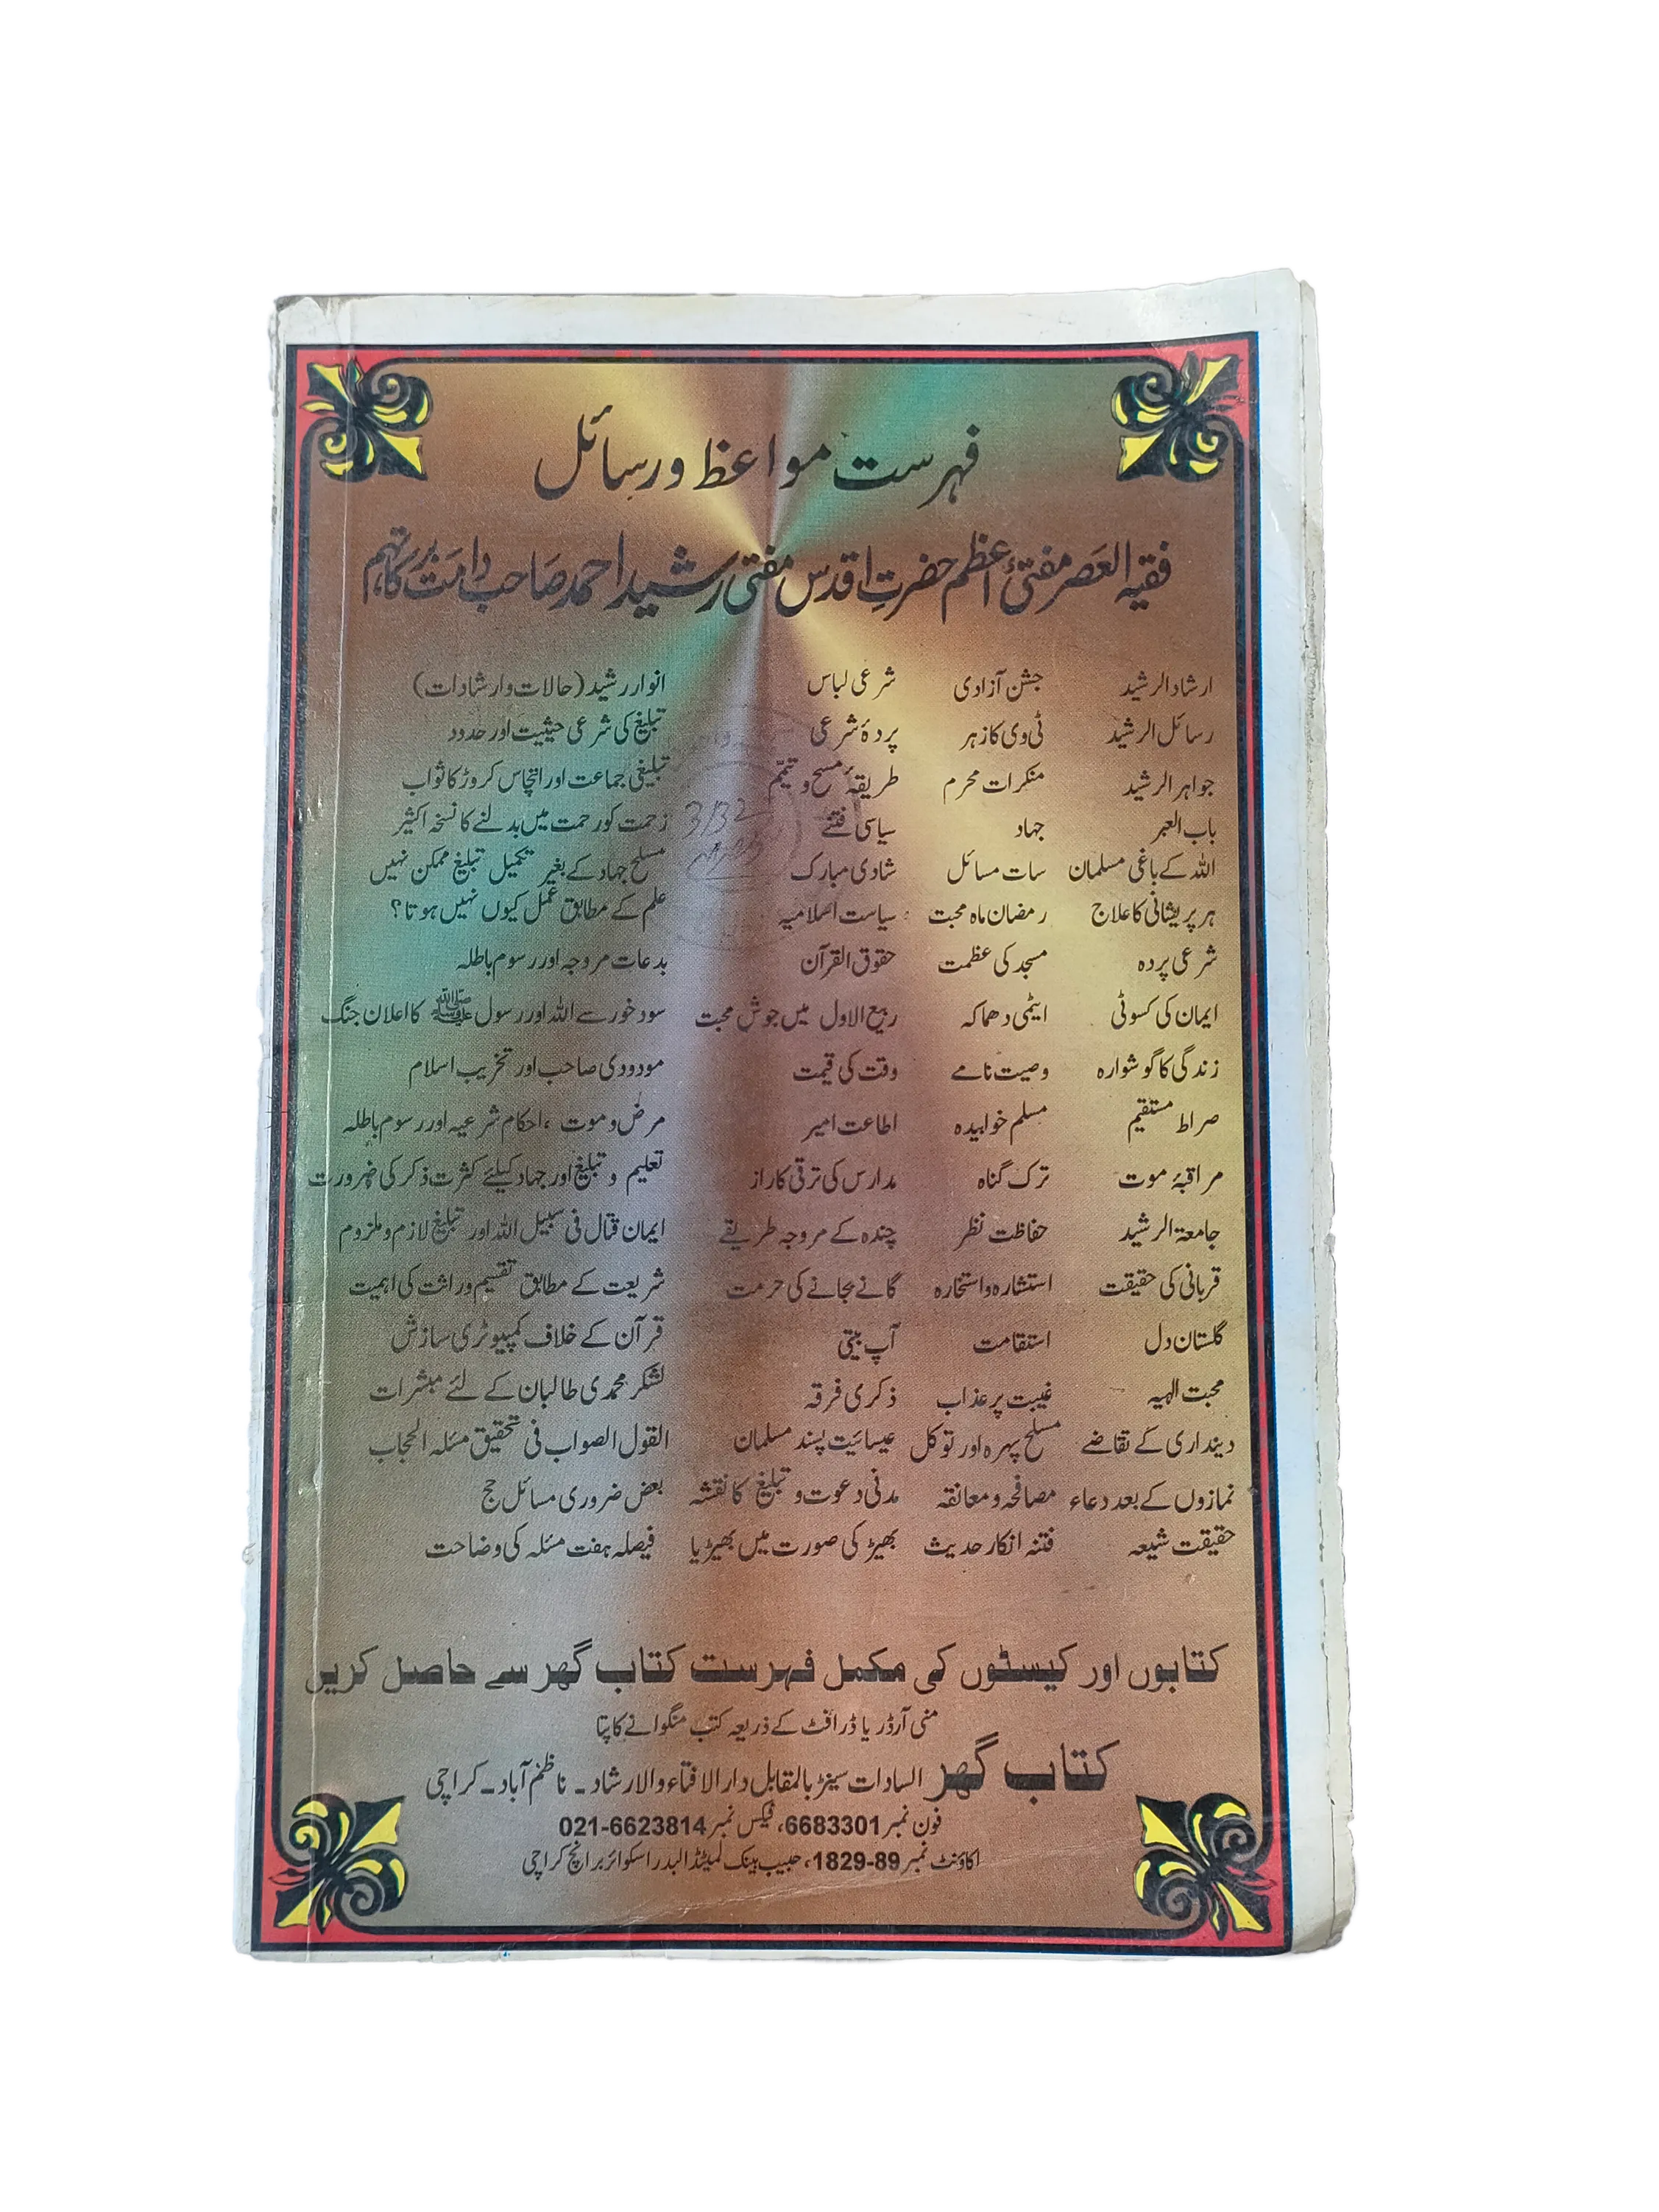 فہرست مواعظ و رسائل
فقیہ العصر مفتیٔ اعظم حضرتِ اقدس مفتی رشید احمد صاحب دامت برکاتہم
ارشاد الرشید جشن آزادی شرعی لباس انوار رشید (حالات و ارشادات)
رسائل الرشید ٹی وی کا زہر پردۂ شرعی تبلیغ کی شرعی حیثیت اور حدود
جواہر الرشید منکرات محرم طریقۂ مسح و تیمّم تبلیغی جماعت اور انچاس کروڑ کا ثواب
باب العبر جہاد سیاسی فتنے زحمت کو رحمت میں بدلنے کا نسخۂ اکثیر
اللہ کے باغی مسلمان سات مسائل شادی مبارک مسلح جہاد کے بغیر تکمیل تبلیغ ممکن نہیں
ہر پریشانی کا علاج رمضان ماہ محبت سیاست اسلامیہ علم کے مطابق عمل کیوں نہیں ہوتا؟
شرعی پردہ مسجد کی عظمت حقوق القرآن بدعات مروجہ اور رسوم باطلہ
ایمان کی کسوٹی ایٹمی دھماکہ ربیع الاول میں جوش محبت سود خور سے اللہ اور رسول ﷺ کا اعلان جنگ
زندگی کا گوشوارہ وصیت نامے وقت کی قیمت مودودی صاحب اور تخریب اسلام
صراط مستقیم مسلم خوابیدہ اطاعت امیر مرض و موت، احکام شرعیہ اور رسوم باطلہ
مراقبۂ موت ترک گناہ مدارس کی ترقی کا راز تعلیم و تبلیغ اور جہاد کیلئے کثرت ذکر کی ضرورت
جامعۃ الرشید حفاظت نظر چندہ کے مروجہ طریقے ایمان قتال فی سبیل اللہ اور تبلیغ لازم و ملزوم
قربانی کی حقیقت استشارہ و استخارہ گانے بجانے کی حرمت شریعت کے مطابق تقسیم وراثت کی اہمیت
گلستان دل استقامت آپ بیتی قرآن کے خلاف کمپیوٹری سازش
محبت الٰہیہ غیبت پر عذاب ذکری فرقہ لشکر محمدی طالبان کے لئے مبشرات
دینداری کے تقاضے مسلح پہرہ اور توکل عیسائیت پسند مسلمان القول الصواب فی تحقیق مسئلہ الحجاب
نمازوں کے بعد دعاء مصافحہ و معانقہ مدنی دعوت و تبلیغ کا نقشہ بعض ضروری مسائل حج
حقیقت شیعہ فتنہ انکار حدیث بھیڑ کی صورت میں بھیڑیا فیصلہ ہفت مسئلہ کی وضاحت
3132
کتابوں اور کیسٹوں کی مکمل فہرست کتاب گھر سے حاصل کریں
منی آرڈر یا ڈرافٹ کے ذریعہ کتب منگوانے کا پتا
کتاب گھر السادات سینٹر بالمقابل دارالافتاء والارشاد۔ ناظم آباد۔ کراچی
فون نمبر 6683301، فیکس نمبر 021-6623814
اکاؤنٹ نمبر 1829-89، حبیب بینک لمیٹڈ البدر اسکوائر برانچ کراچی